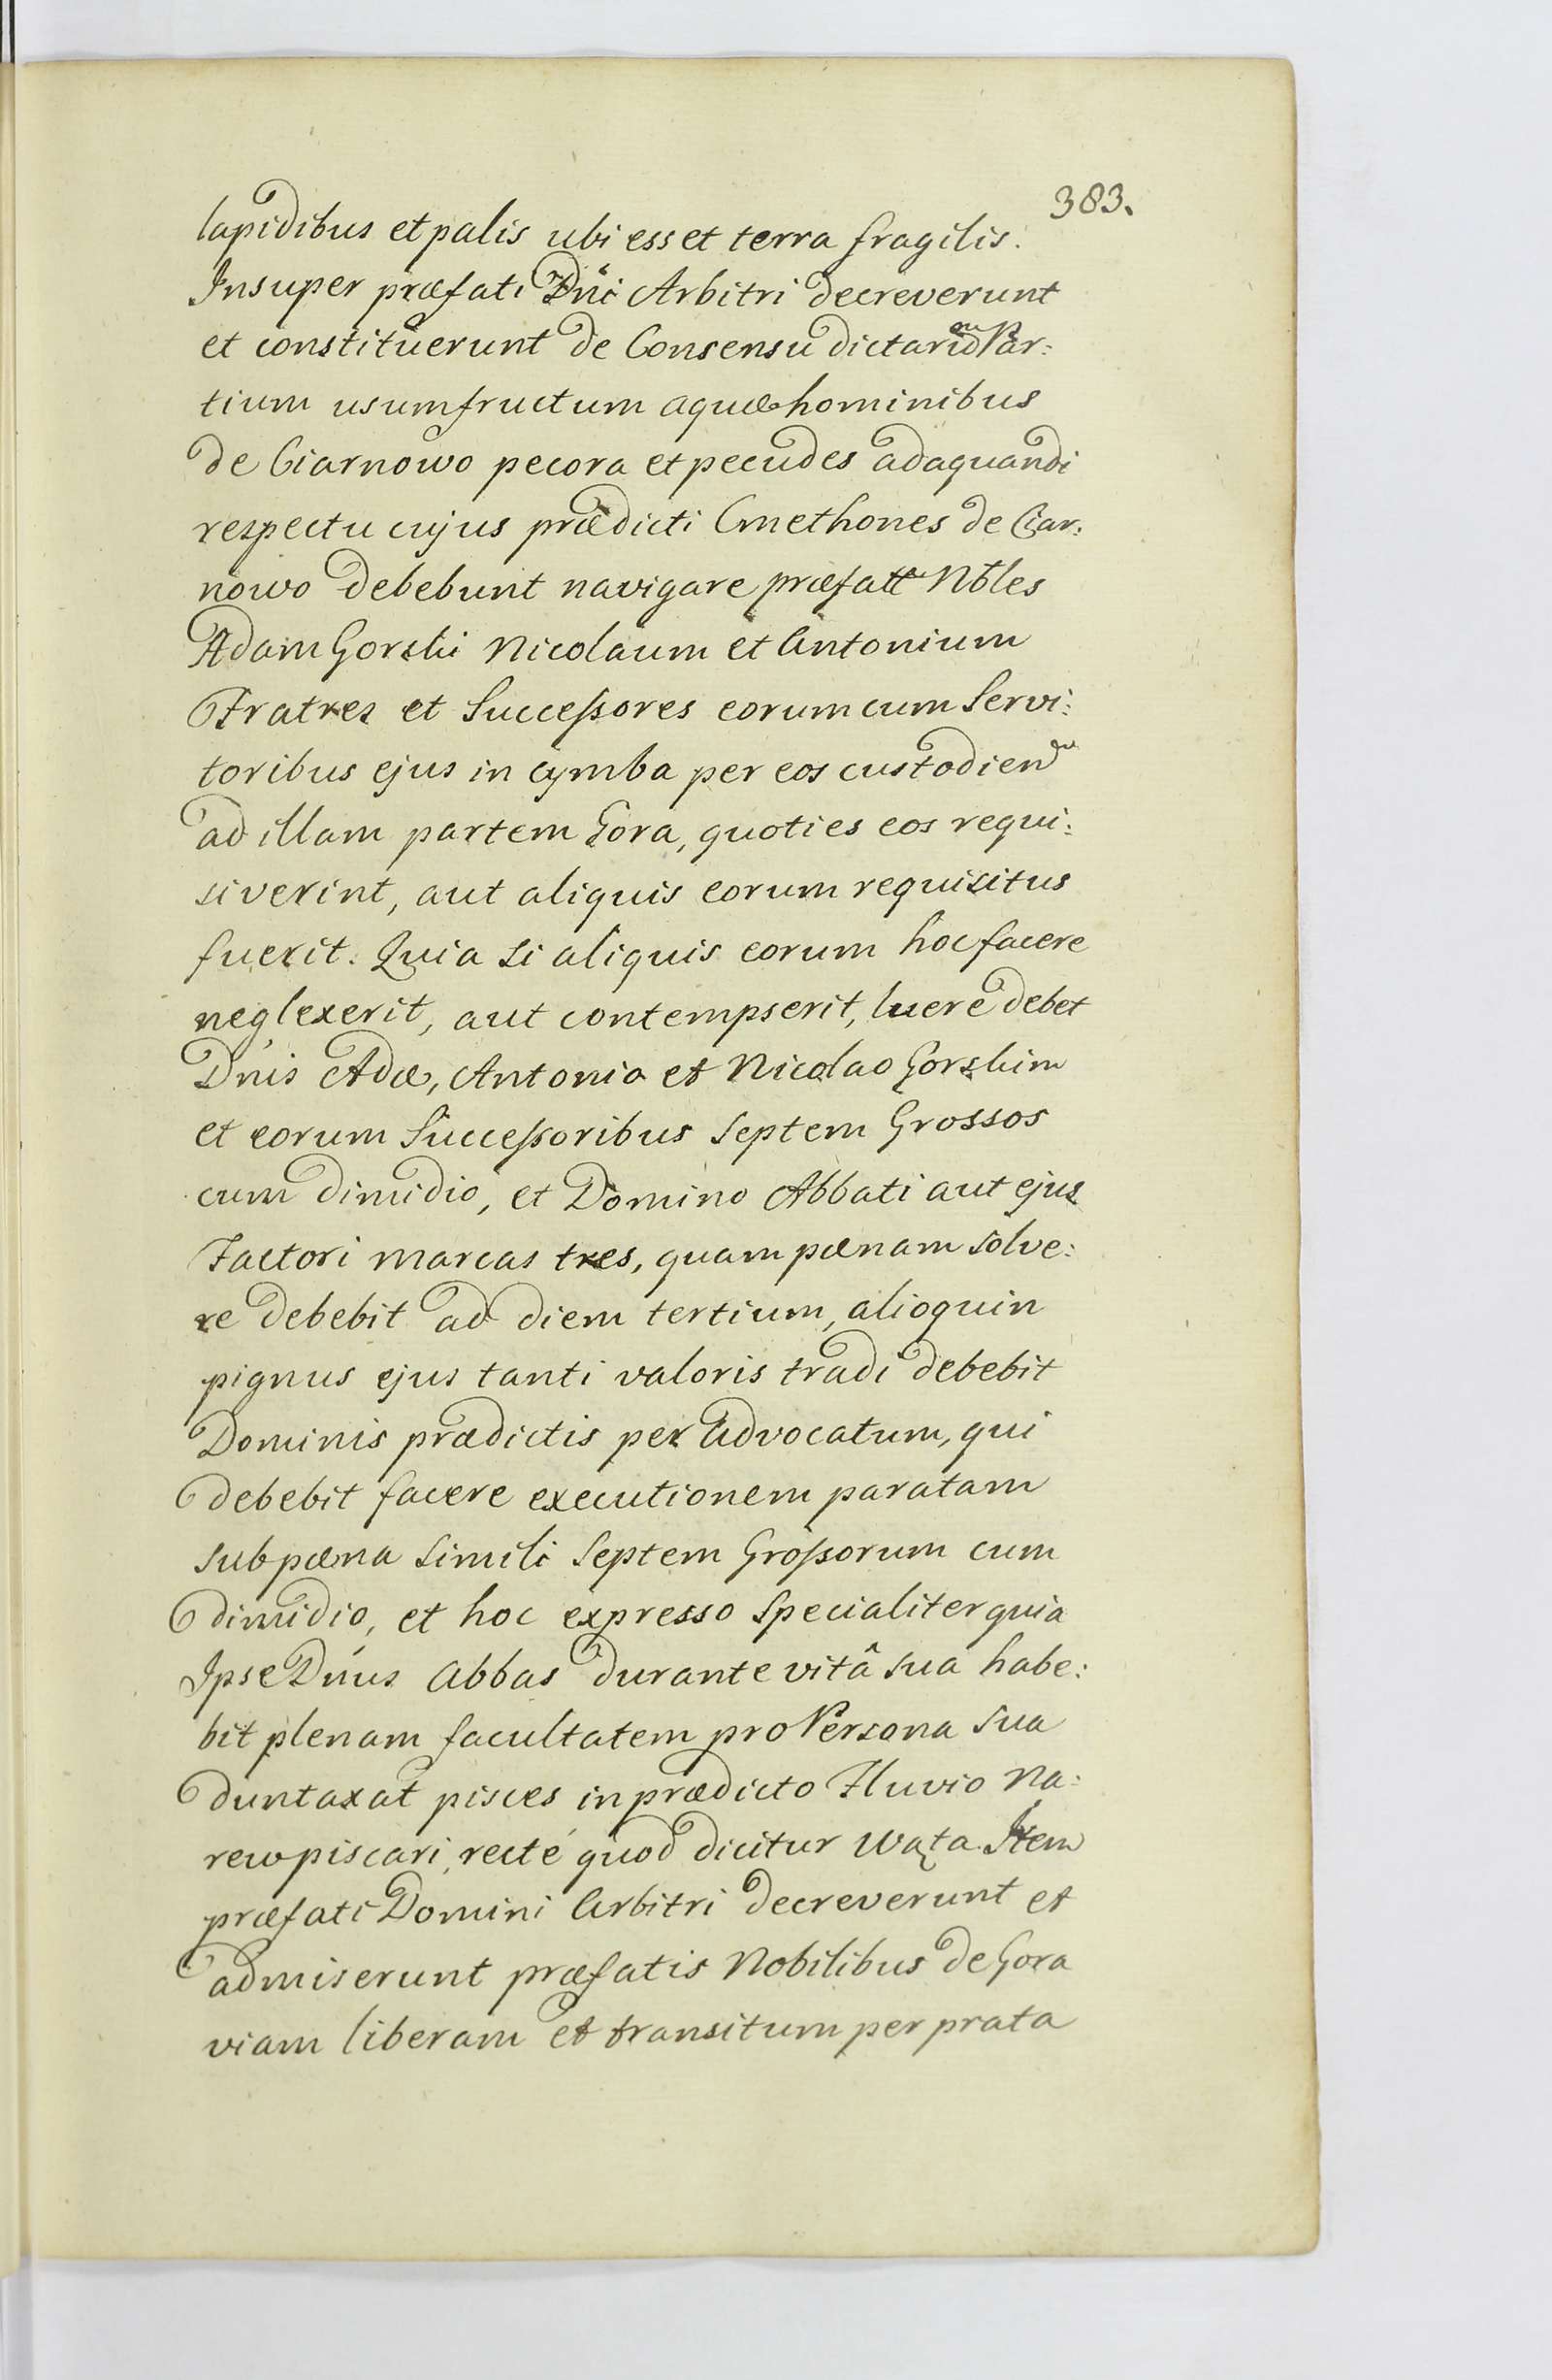 383.
lapidibus et palis ubi esset terra fragilis.
Insuper præfati Dn̄i Arbitri decreverunt
et constituerunt de Consensu dictarum Par:
tium usumfructum aquæ hominibus
de Ciarnowo pecora et pecudes adaquandi
respectu cujus prædicti Cmethones de Ciar:
nowo debebunt navigare præfatt Nobles
Adam Gorski Nicolaum et Antonium
Fratres et Successores eorum cum Servi:
toribus ejus in cymba per eos custodien
ad illam partem Gora, quoties eos requi:
siverint, aut aliquis eorum requisitus
fuerit. Quia si aliquis eorum hoc facere
neglexerit, aut contempserit, luere debet
Dnis Adæ, Antonio et Nicolao Gorskim
et eorum Successoribus Septem Grossos
cum dimidio, et Domino Abbati aut ejus
Factori marcas tres, quam pænam solve:
re debebit ad diem tertium, alioquin
pignus ejus tanti valoris tradi debebit
Dominis prædictis per Advocatum, qui
debebit facere executionem paratam
sub pæna simili Septem Grossorum cum
dimidio, et hoc expresso specialiter quia
Ipse Dnus Abbas durante vitâ sua habe:
bit plenam facultatem pro Persona sua
duntaxat pisces in prædicto Fluvio Na:
rew piscari, recté quod dicitur Wata. Item
præfati Domini Arbitri decreverunt et
admiserunt præfatis Nobilibus de Gora
viam liberam et transitum per prata